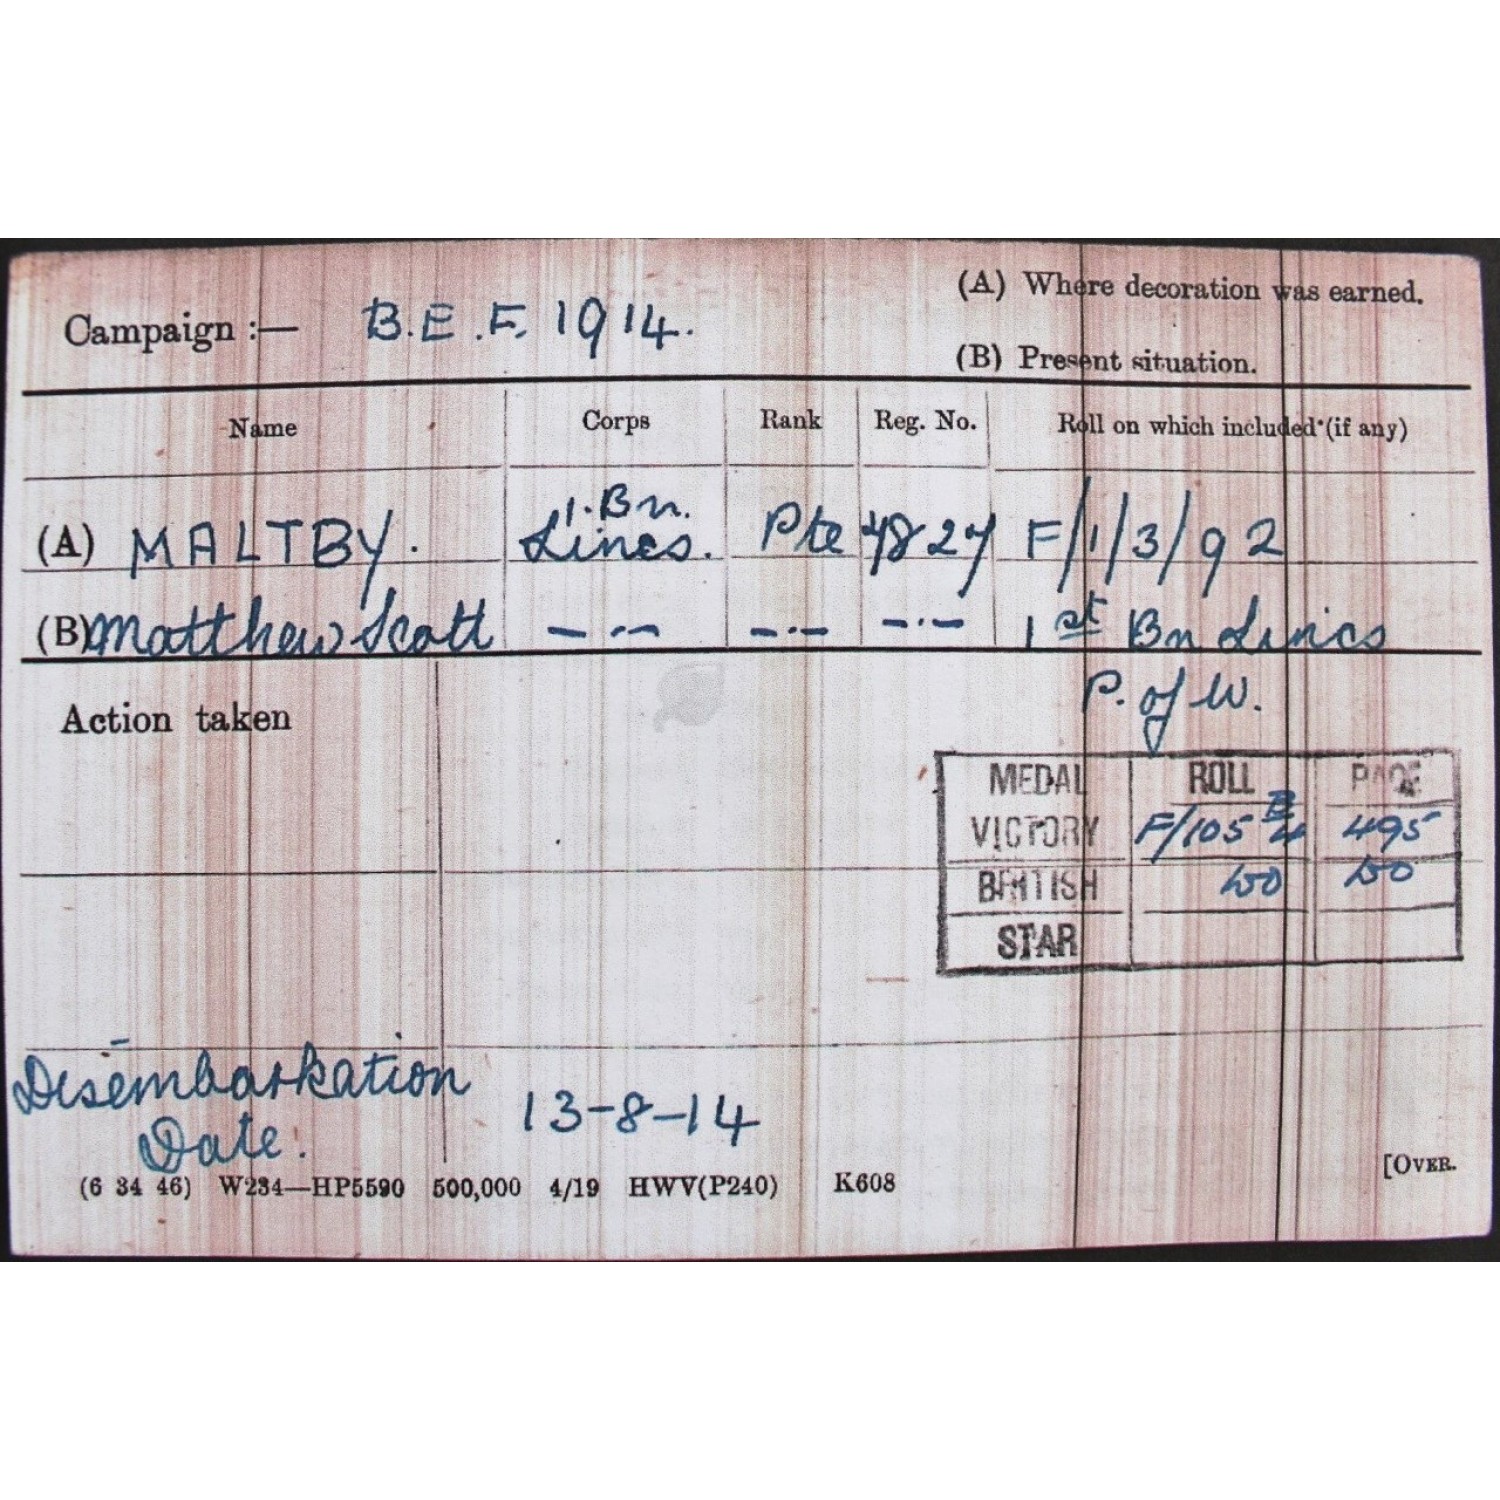 Campaign :— B.E.F. 1914.
(A) Where decoration was earned.
(B) Present situation.
Name Corps Rank Reg. No. Roll on which included (if any)
(A) MALTBY. 1. Bn. Lincs. Pte 4827 F/1/3/92
(B) Matthew Scott — -- —.— —.— 1st Bn Lincs
P. of W.
Action taken
MEDAL ROLL PAGE
VICTORY F/105 B4 495
BRITISH do do
STAR
Disembarkation
Date. 13-8-14
[OVER.
(6 34 46) W234—HP5590 500,000 4/19 HWV(P240) K608